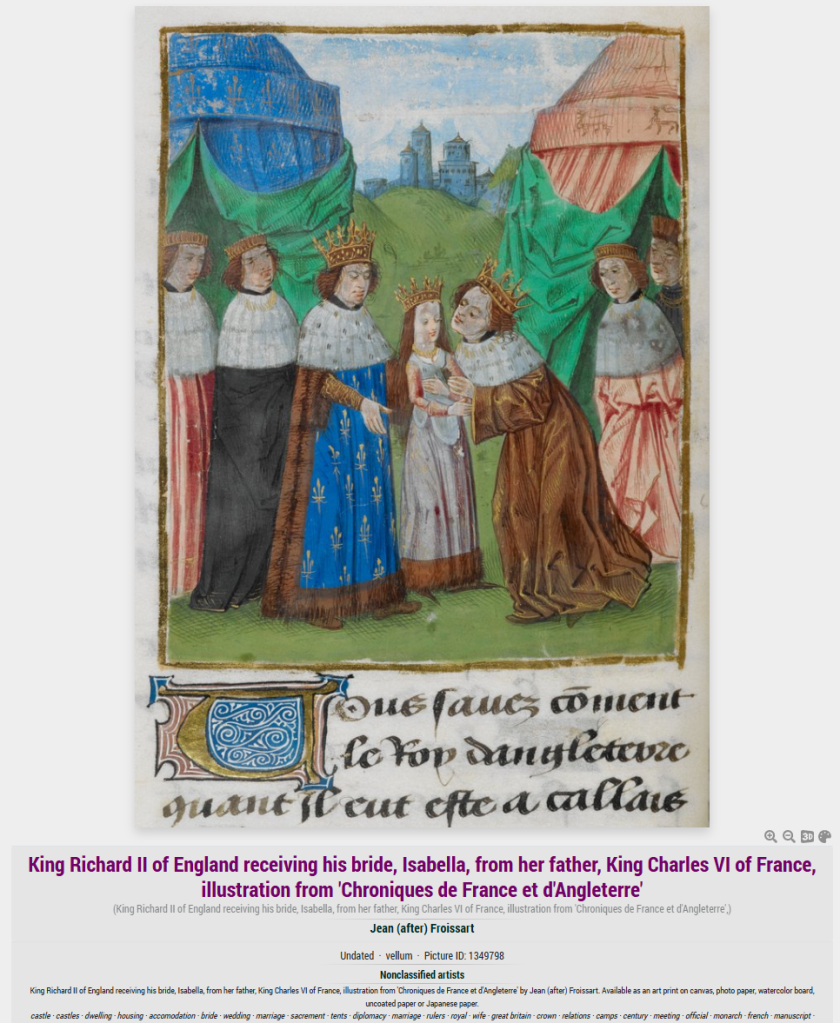 Vous sauez cõment
le Roy dangleterre
quant Il eut este a callais
3D
King Richard II of England receiving his bride, Isabella, from her father, King Charles VI of France,
illustration from 'Chroniques de France et d'Angleterre'
(King Richard II of England receiving his bride, Isabella, from her father, King Charles VI of France, illustration from 'Chroniques de France et d'Angleterre',)
Jean (after) Froissart
Undated · vellum · Picture ID: 1349798
Nonclassified artists
King Richard II of England receiving his bride, Isabella, from her father, King Charles VI of France, illustration from 'Chroniques de France et d'Angleterre' by Jean (after) Froissart. Available as an art print on canvas, photo paper, watercolor board,
uncoated paper or Japanese paper.
castle · castles · dwelling · housing · accomodation · bride · wedding · marriage · sacrement · tents · diplomacy · marriage · rulers · royal · wife · great britain · crown · relations · camps · century · meeting · official · monarch · french · manuscript ·